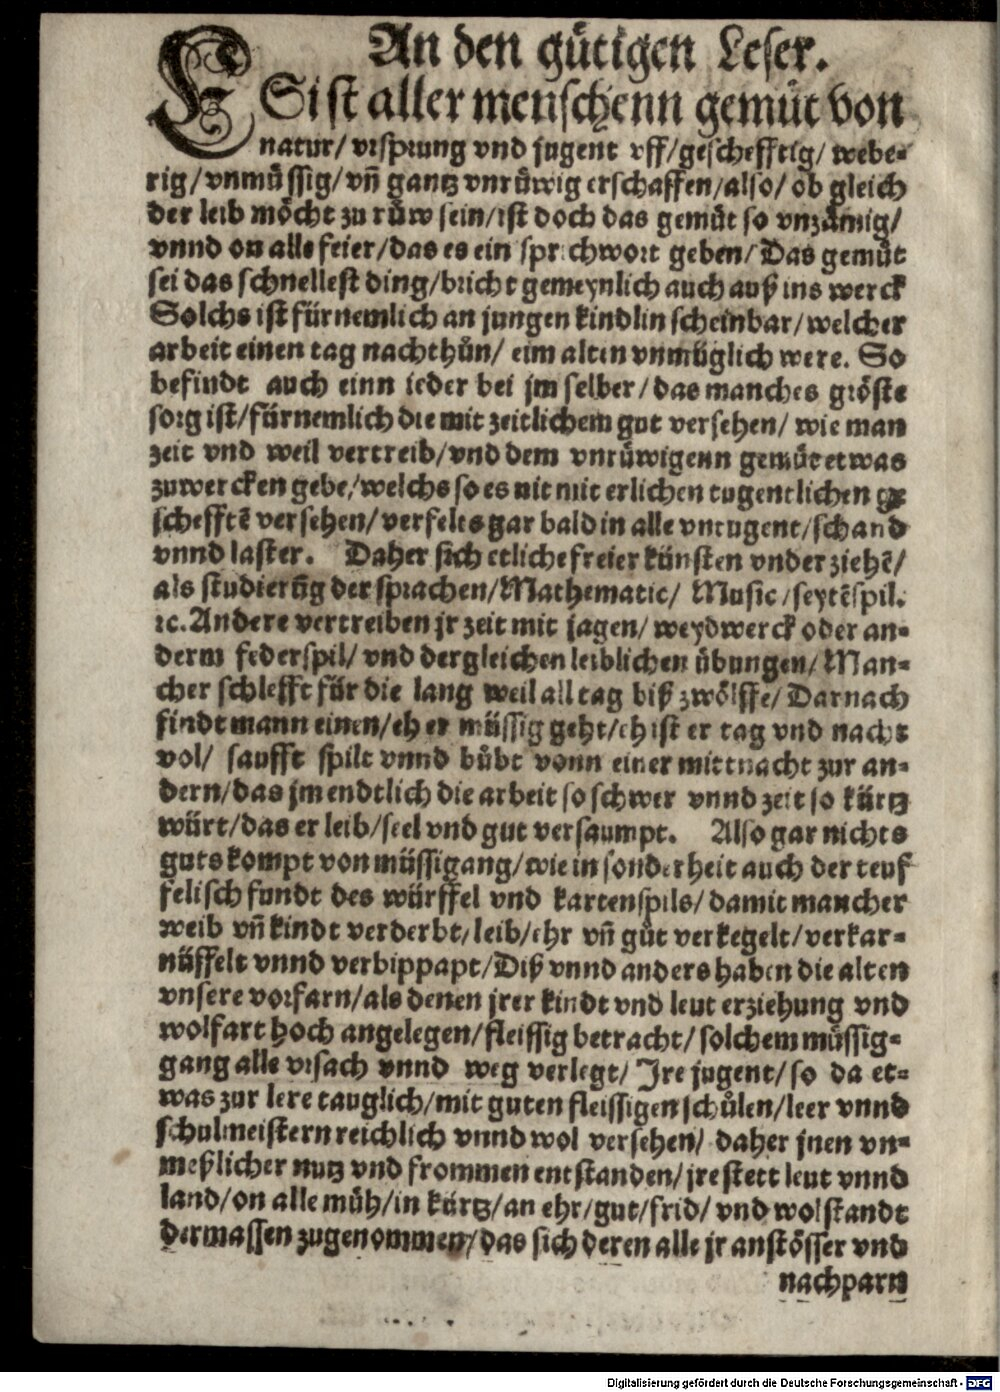 An den gütigen Leser.
ES ist aller menschenn gemüt von
natur/ vrsprung vnd jugent vff/geschefftig/ webe-
rig/vnmüssig/vñ gantz vnrüwig erschaffen/also/ ob gleich
der leib möcht zu rüw sein/ist doch das gemüt so vnzämig/
vnnd on alle feier/das es ein sprichwort geben/ Das gemüt
sei das schnellest ding/bricht gemeynlich auch auß ins werck
Solchs ist fürnemlich an jungen kindlin scheinbar/welcher
arbeit einen tag nachthůn/ eim alten vnmüglich were. So
befindt auch einn ieder bei jm selber/das manches gröste
sorg ist/fürnemlich die mit zeitlichem gut versehen/ wie man
zeit vnd weil vertreib/vnd dem vnrüwigenn gemüt etwas
zuwercken gebe/welchs so es nit mit erlichen tugentlichen ge
schefftē versehen/verfelts gar bald in alle vntugent/schand
vnnd laster. Daher sich etliche freier künsten vnderziehē/
als studierūg der sprachen/Mathematic/ Music/seytēspil.
ꝛc. Andere vertreiben jr zeit mit jagen/ weydwerck oder an-
derm federspil/ vnd dergleichen leiblichen übungen/Man-
cher schlefft für die lang weil all tag biß zwölffe/Darnach
findt mann einen/eh er müssig geht/eh ist er tag vnd nacht
vol/ saufft spilt vnnd bůbt vonn einer mittnacht zur an-
dern/das jm endtlich die arbeit so schwer vnnd zeit so kürtz
würt/das er leib/seel vnd gut versaumpt. Also gar nichts
guts kompt von müssigang/wie in sonderheit auch der teuf
felisch fundt des würffel vnd kartenspils/damit mancher
weib vñ kindt verderbt/leib/ehr vñ gůt verkegelt/verkar-
nüffelt vnnd verbippapt/Diß vnnd anders haben die alten
vnsere vorfarn/als denen jrer kindt vnd leut erziehung vnd
wolfart hoch angelegen/fleissig betracht/solchem müssig-
gang alle vrsach vnnd weg verlegt/ Ire jugent/so da et-
was zur lere tauglich/mit guten fleissigen schůlen/leer vnnd
schulmeistern reichlich vnnd wol versehen/ daher jnen vn-
meßlicher nutz vnd frommen entstanden/jre stett leut vnnd
land/on alle müh/in kürtz/an ehr/gut/frid/ vnd wolstandt
dermassen zugenommen/das sich deren alle jr anstösser vnd
nachparn
Digitalisierung gefördert durch die Deutsche Forschungsgemeinschaft - DFG